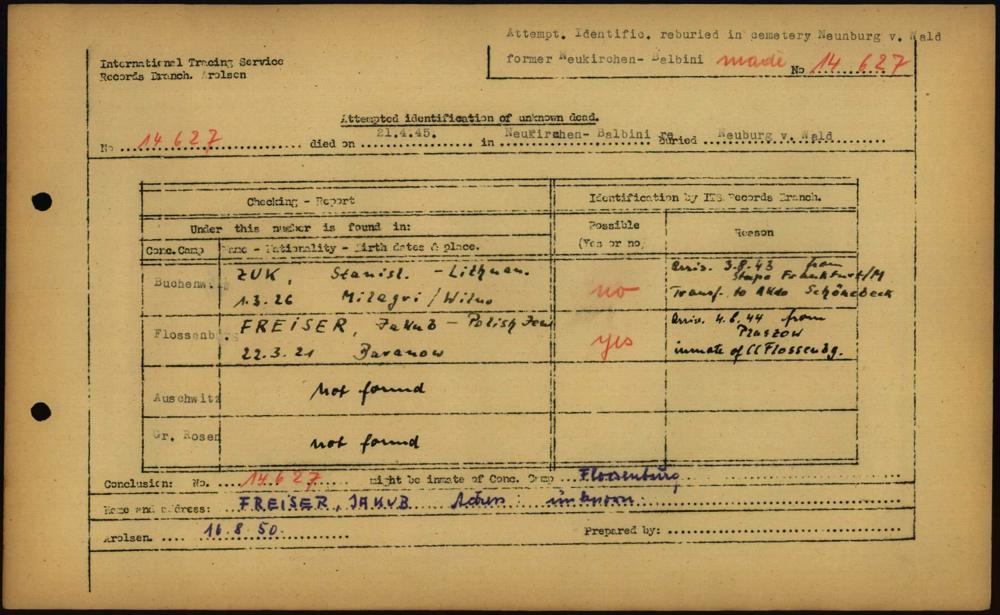 Attempt. Identific. reburied in cemetery Neunburg v. Wald
former Neukirchen- Balbini made No 14 627
International Tracing Service
Records Branch. Arolsen
Attempted identification of unknown dead.
No 14627 died on 21.4.45. in Neukirchen- Balbini re buried Neuburg v. Wald
Checking - Report
Identification by ITS Records Branch.
Under this number is found in:
Possible (Yes or no)
Reason
Conc. Camp
Name - Nationality - Birth dates & place.
Buchenw
ZUK, Stanisl. - Lithuan.
1.3.26 Milegri / Wilno
no
Arriv. 3.8.43 from
Stapo Frankfurt/M
Transf. to Akdo Schönebeck
Flossenb
FREISER, Jakub - Polish Jew
22.3.21 Baranow
yes
Arriv. 4.8.44 from
Plaszow
inmate of CC Flossenbg.
Auschwitz
not found
Gr. Rosen
not found
Conclusion: No. 14627 might be inmate of Conc. Camp Flossenburg
Name and address: FREISER, JAKUB Adress: unknown.
Arolsen 16.8.50. Prepared by: